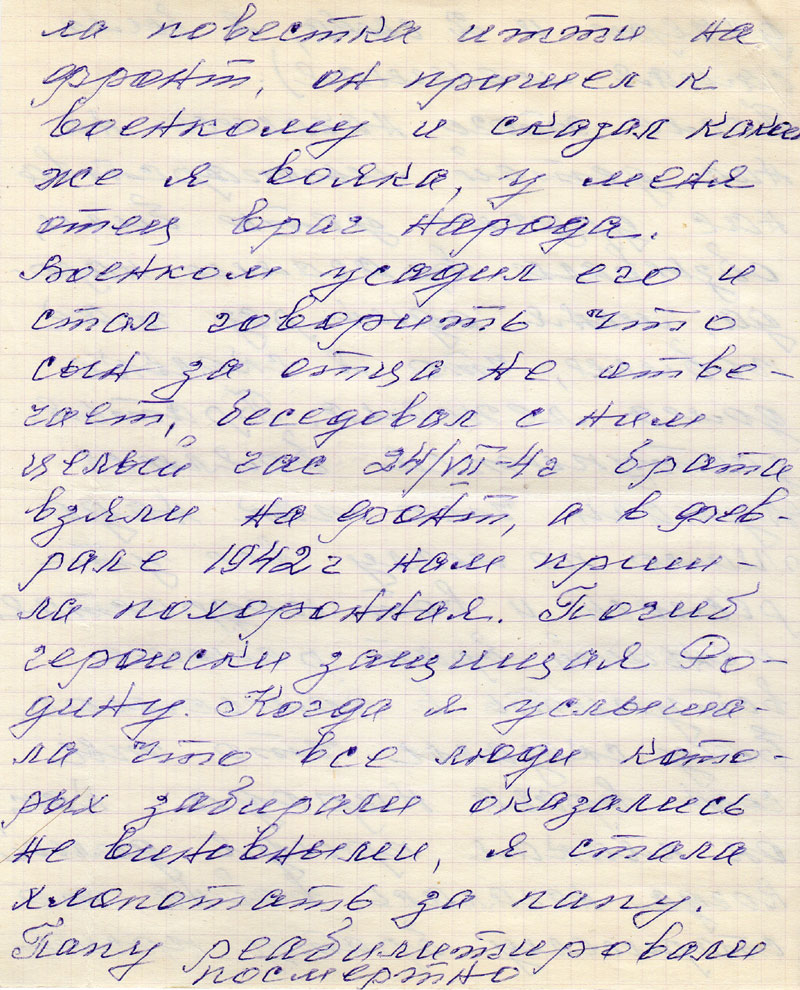 ла повестка итти на
фронт, он пришел к
военкому и сказал какой
же я вояка, у меня
отец враг народа.
Военком усадил его и
стал говорить что
сын за отца не, отве-
чает, беседовал с ним
целый час 24/VII-41г брата
взяли на фронт, а в фев-
рале 1942г нам приш-
ла похоронная. Погиб
геройски защищая Ро-
дину. Когда я услыша-
ла что все люди кото-
рых забирали оказались
не виновными, я стала
хлопотать за папу.
Папу реабилитировали
посмертно